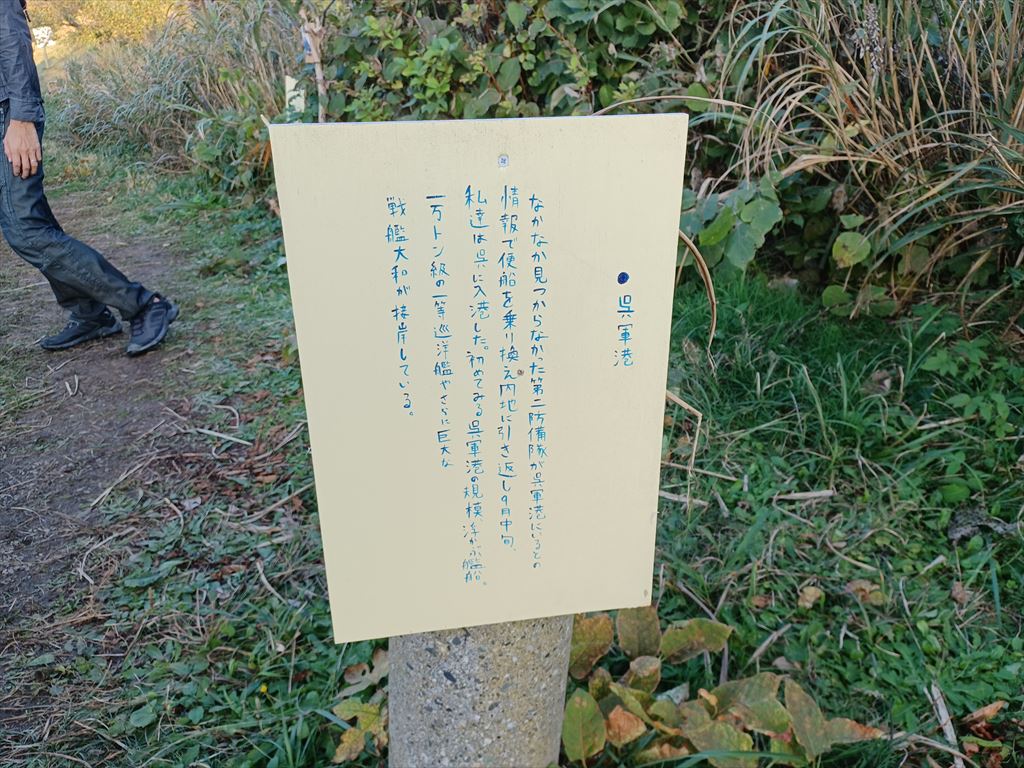 ●呉軍港
なかなか見つからなかった第二防備隊が呉軍港にいるとの
情報で便船を乗り換え内地に引き返し9月中旬、
私達は呉に入港した。初めてみる呉軍港の規模、浮かぶ艦船。
一万トン級の一等巡洋艦やさらに巨大な
戦艦大和が接岸している。